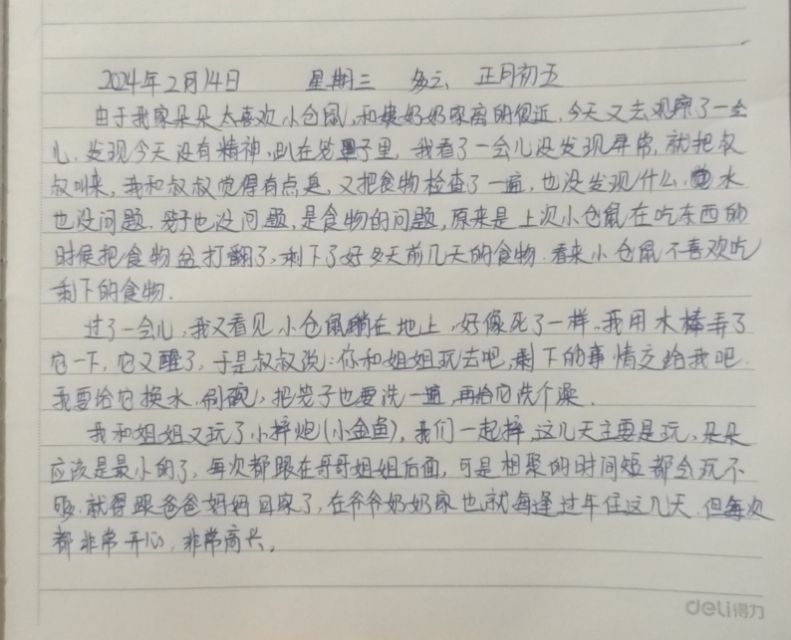 2024年2月14日 星期三 多云 正月初五
由于我家朵朵太喜欢小仓鼠,和姨奶奶家离的很近,今天又去观察了一会
儿,发现今天没有精神,趴在笼子里,我看了一会儿没发现异常,就把叔
叔叫来,我和叔叔觉得有点臭,又把食物检查了一遍,也没发现什么,水
也没问题,笼子也没问题,是食物的问题,原来是上次小仓鼠在吃东西的
时候把食物盆打翻了,剩下了好多天前几天的食物.看来小仓鼠不喜欢吃
剩下的食物.
过了一会儿,我又看见小仓鼠躺在地上,好像死了一样,我用木棒弄了
它一下,它又醒了,于是叔叔说:你和姐姐玩去吧,剩下的事情交给我吧.
我要给它换水,刷碗,把笼子也要洗一遍,再给它洗个澡.
我和姐姐又玩了小摔炮(小金鱼),我们一起摔,这几天主要是玩,朵朵
应该是最小的了,每次都跟在哥哥姐姐后面,可是相聚的时间短都会玩不
够,就得跟爸爸妈妈回家了,在爷爷奶奶家也就每逢过年住这几天,但每次
都非常开心,非常高兴。
deli得力